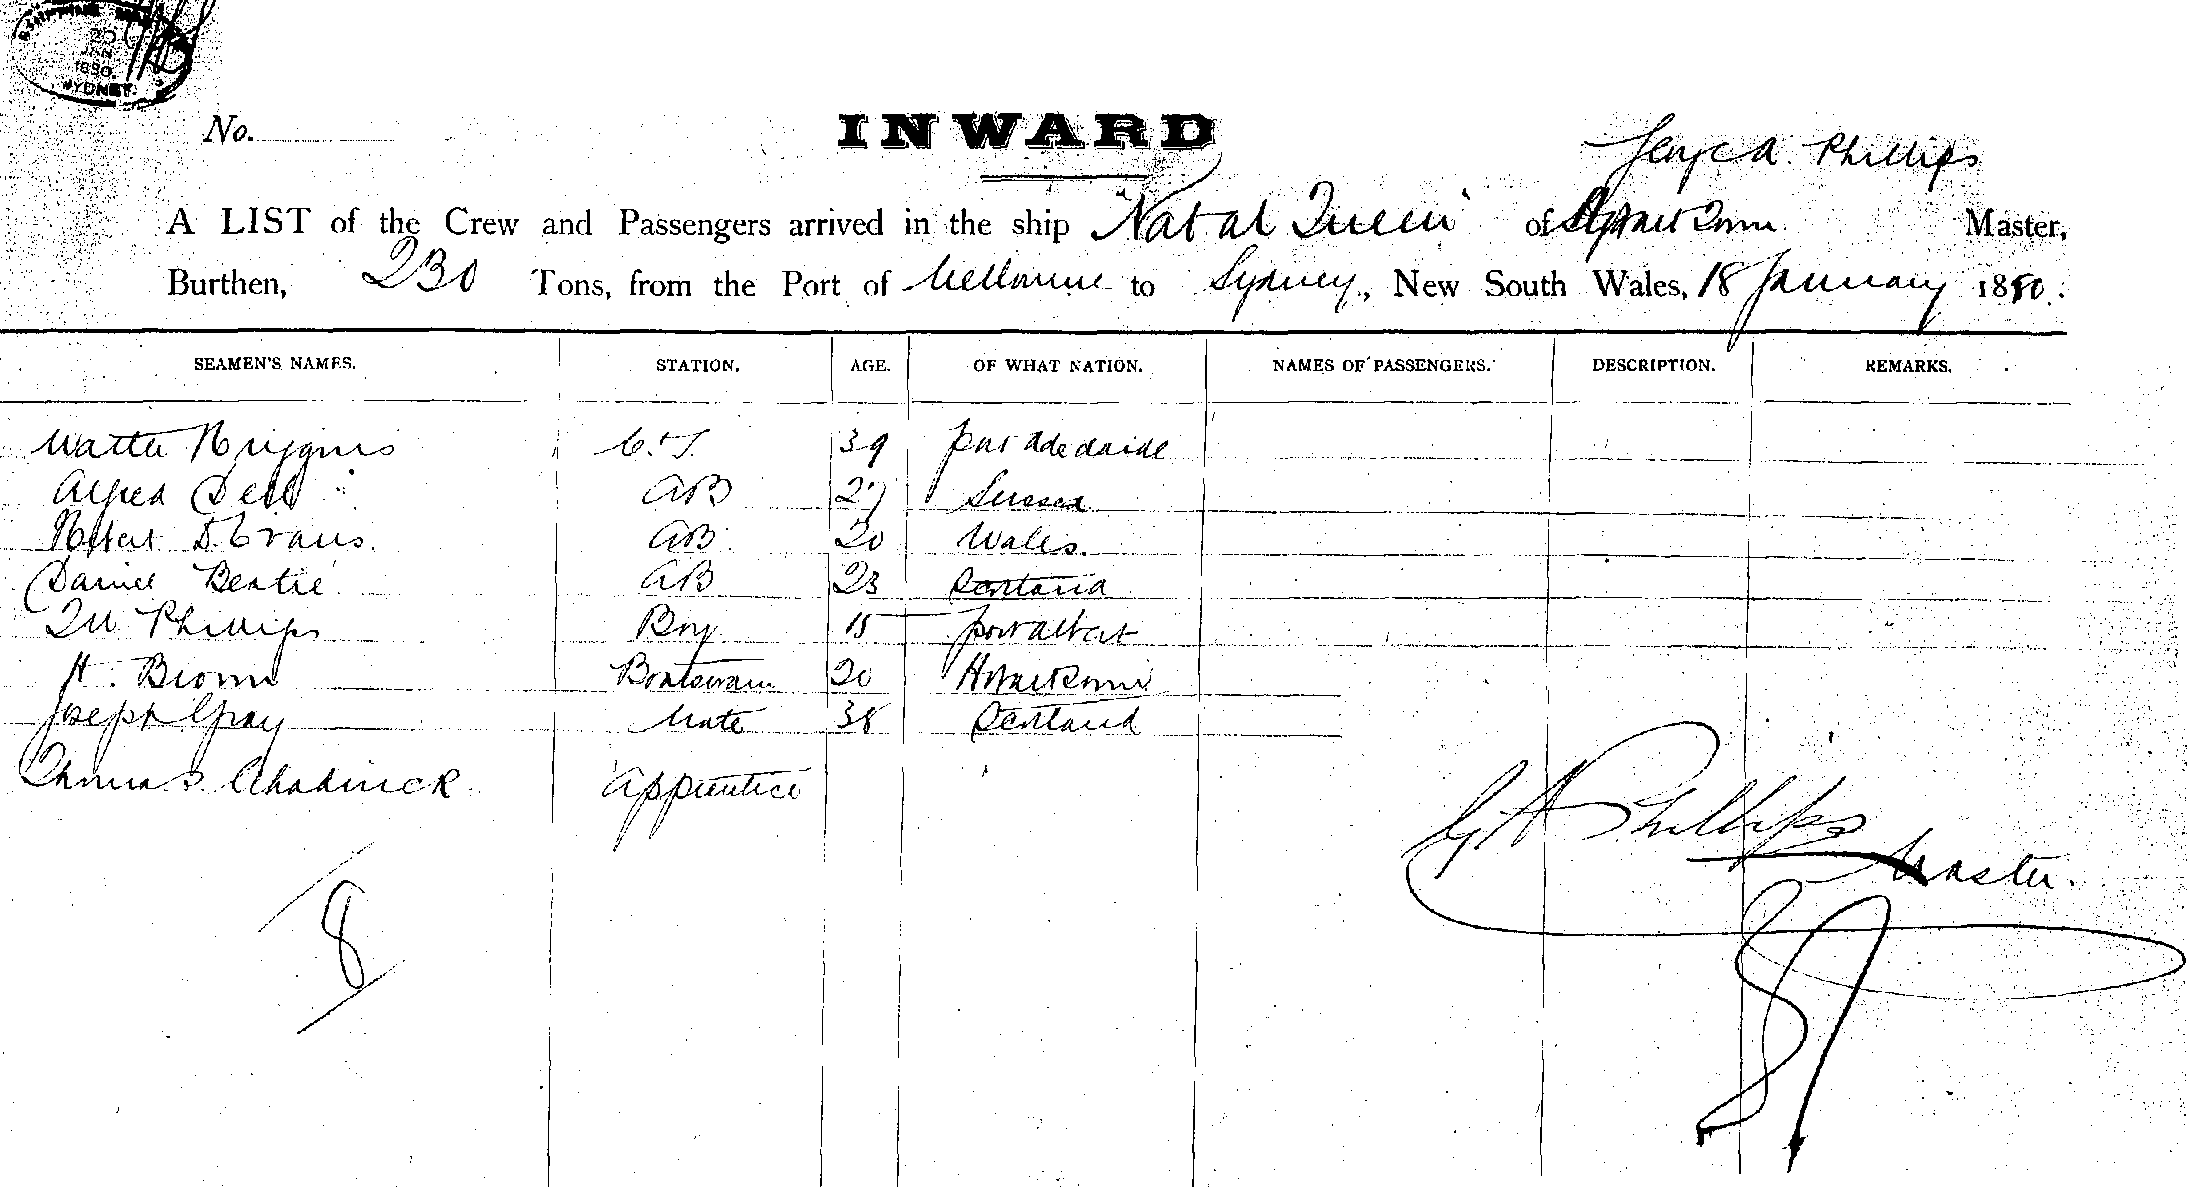 SHIPPING
JAN
1880
SYDNEY
No.
INWARD
George A. Phillips
A LIST of the Crew and Passengers arrived in the ship "Natal Queen" of Hobart Town Master,
Burthen, 230 Tons, from the Port of Melbourne to Sydney, New South Wales, 18 January 1880.
SEAMEN'S NAMES. STATION. AGE. OF WHAT NATION. NAMES OF PASSENGERS. DESCRIPTION. REMARKS.
Walter Higgins 39 Port Adelaide
Alfred Dell AB 27 Sussex
Robert D. Evans. AB 20 Wales.
Daniel Beatie AB 23 Scotland
Phillips Boy 15 Port Albert
H. Brown Boatswain 20 Hobart Town
Joseph Gray Mate 38 Scotland
Thomas Chadwick Apprentice
G A Phillips
Master.
8